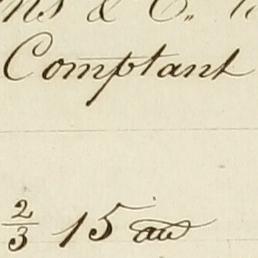 ns & C..
Comptant
2/3 15